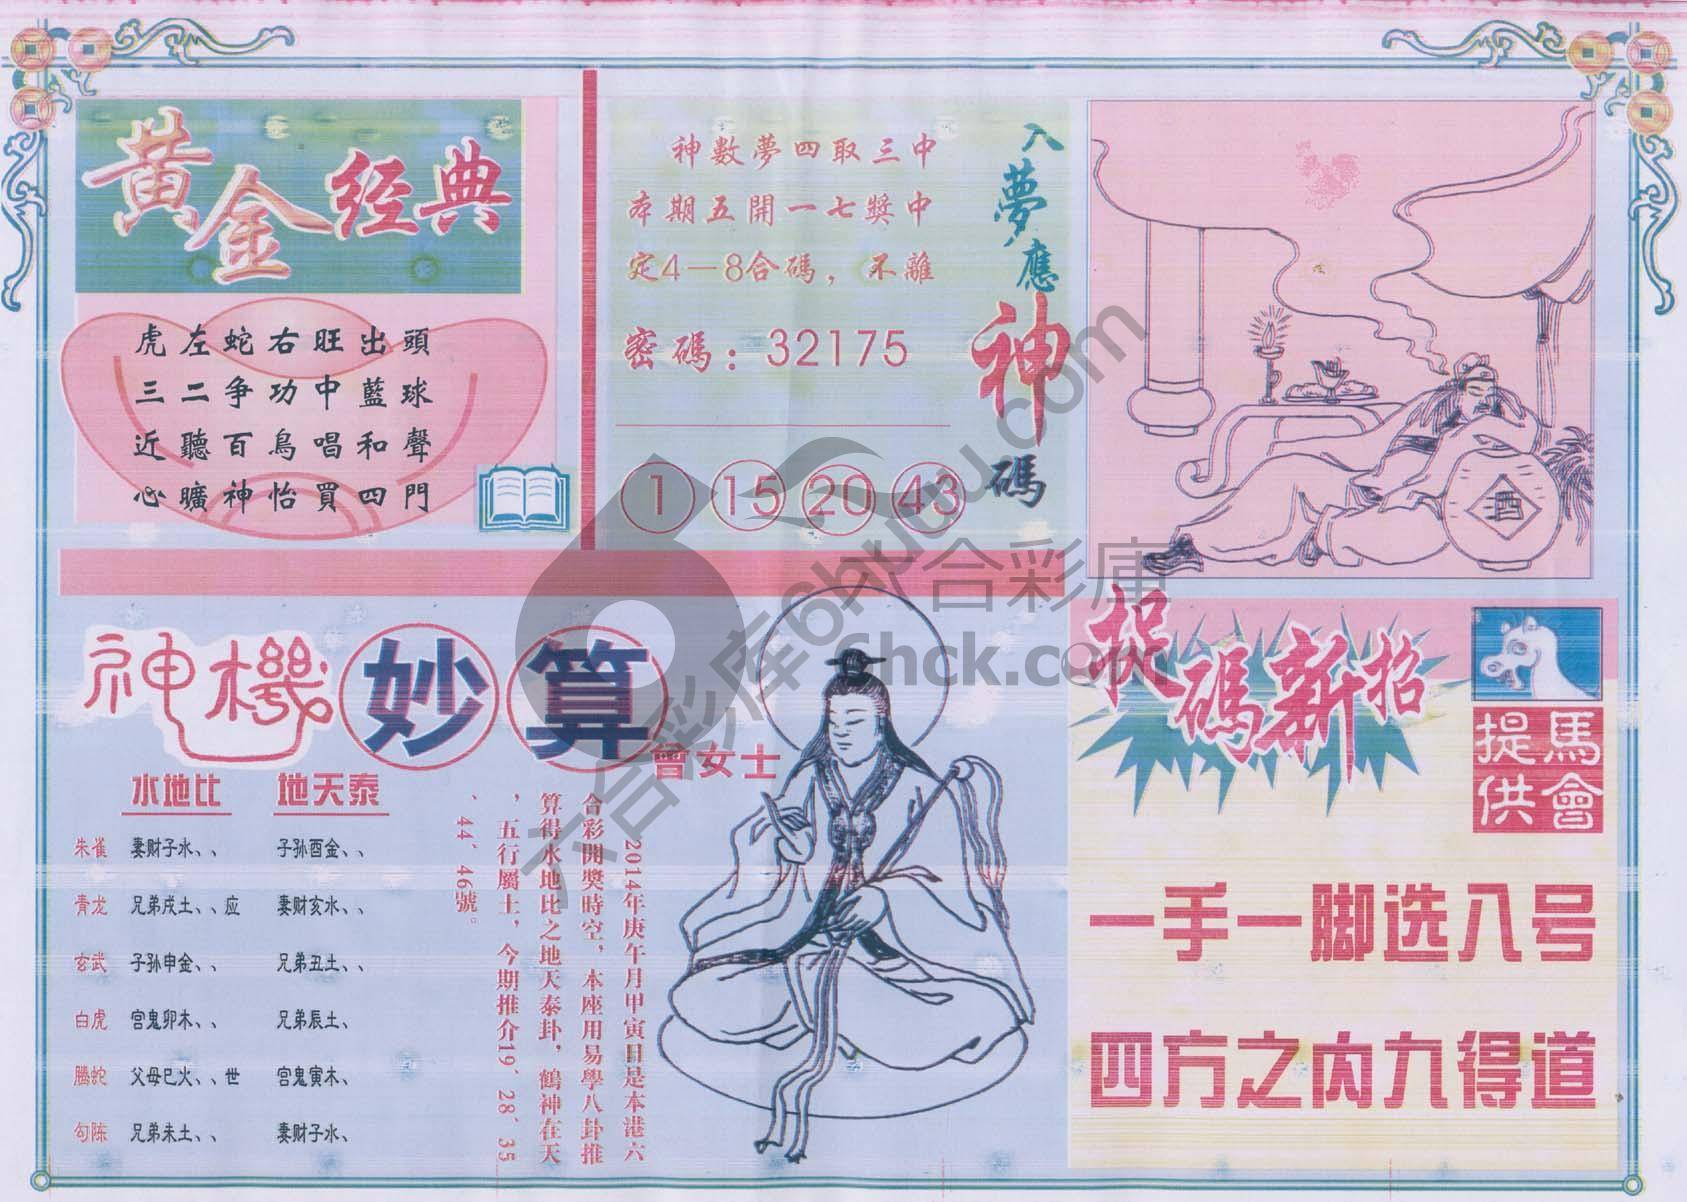 黃金经典
虎左蛇右旺出頭
三二争功中藍球
近聽百鳥唱和聲
心曠神怡買四門
入夢應神碼
神數夢四取三中
本期五開一七獎中
定4－8合碼，不離
密碼：32175
1 15 20 43
酒
神機妙算
曾女士
水地比 地天泰
朱雀 妻财子水、、 子孙酉金、、
青龙 兄弟戌土、、应 妻财亥水、、
玄武 子孙申金、、 兄弟丑土、、
白虎 宫鬼卯木、、 兄弟辰土、
腾蛇 父母巳火、、世 宫鬼寅木、
勾陈 兄弟未土、、 妻财子水、
2014年庚午月甲寅日是本港六
合彩開獎時空，本座用易學八卦推
算得水地比之地天泰卦，鶴神在天
，五行屬土，今期推介19、28、35
、44、46號。
捉碼新招
馬會
提供
一手一脚选入号
四方之内九得道
六合彩库6huu.com
六合彩庫
6hck.com